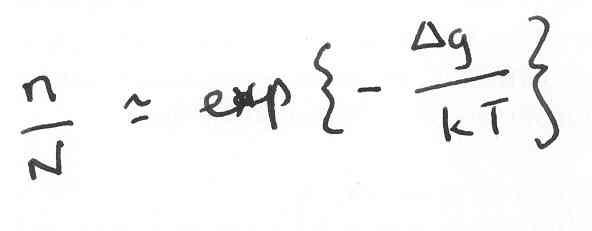 n/N ≃ exp{-Δg/kT}